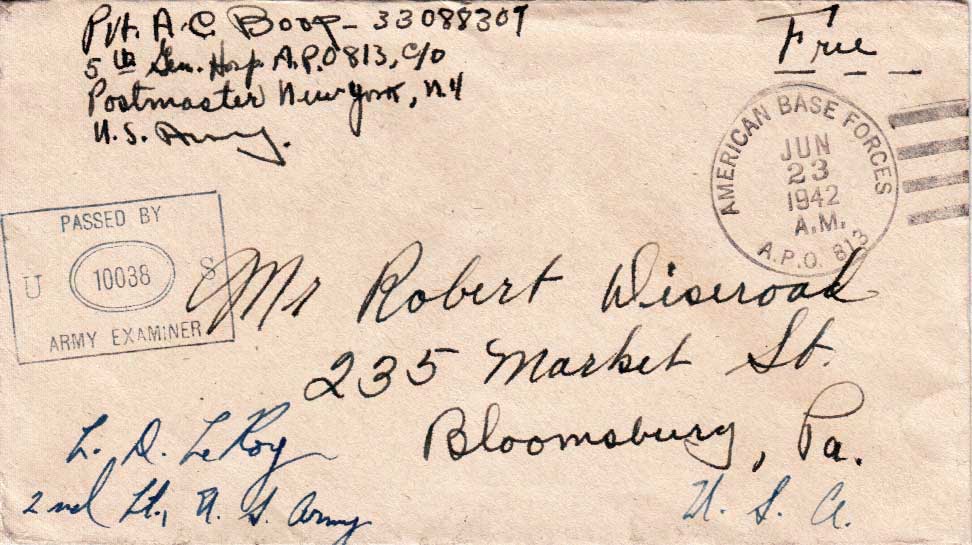 Pvt. A. C. Boop - 33088307
5th Gen. Hosp A.P.O 813, c/o
Postmaster New York, N.Y
U.S. Army.
Free
AMERICAN BASE FORCES
JUN
23
1942
A.M.
A.P.O. 813
PASSED BY
U 10038 S
ARMY EXAMINER
Mr Robert Wiseroad
235 Market St.
Bloomsburg, Pa.
U. S. A.
L. D. LeRoy
2nd Lt., U. S. Army